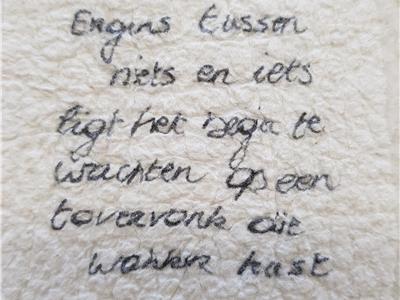 Ergens tussen
niets en iets
ligt het begin te
wachten op een
tovervonk die
wakker kust